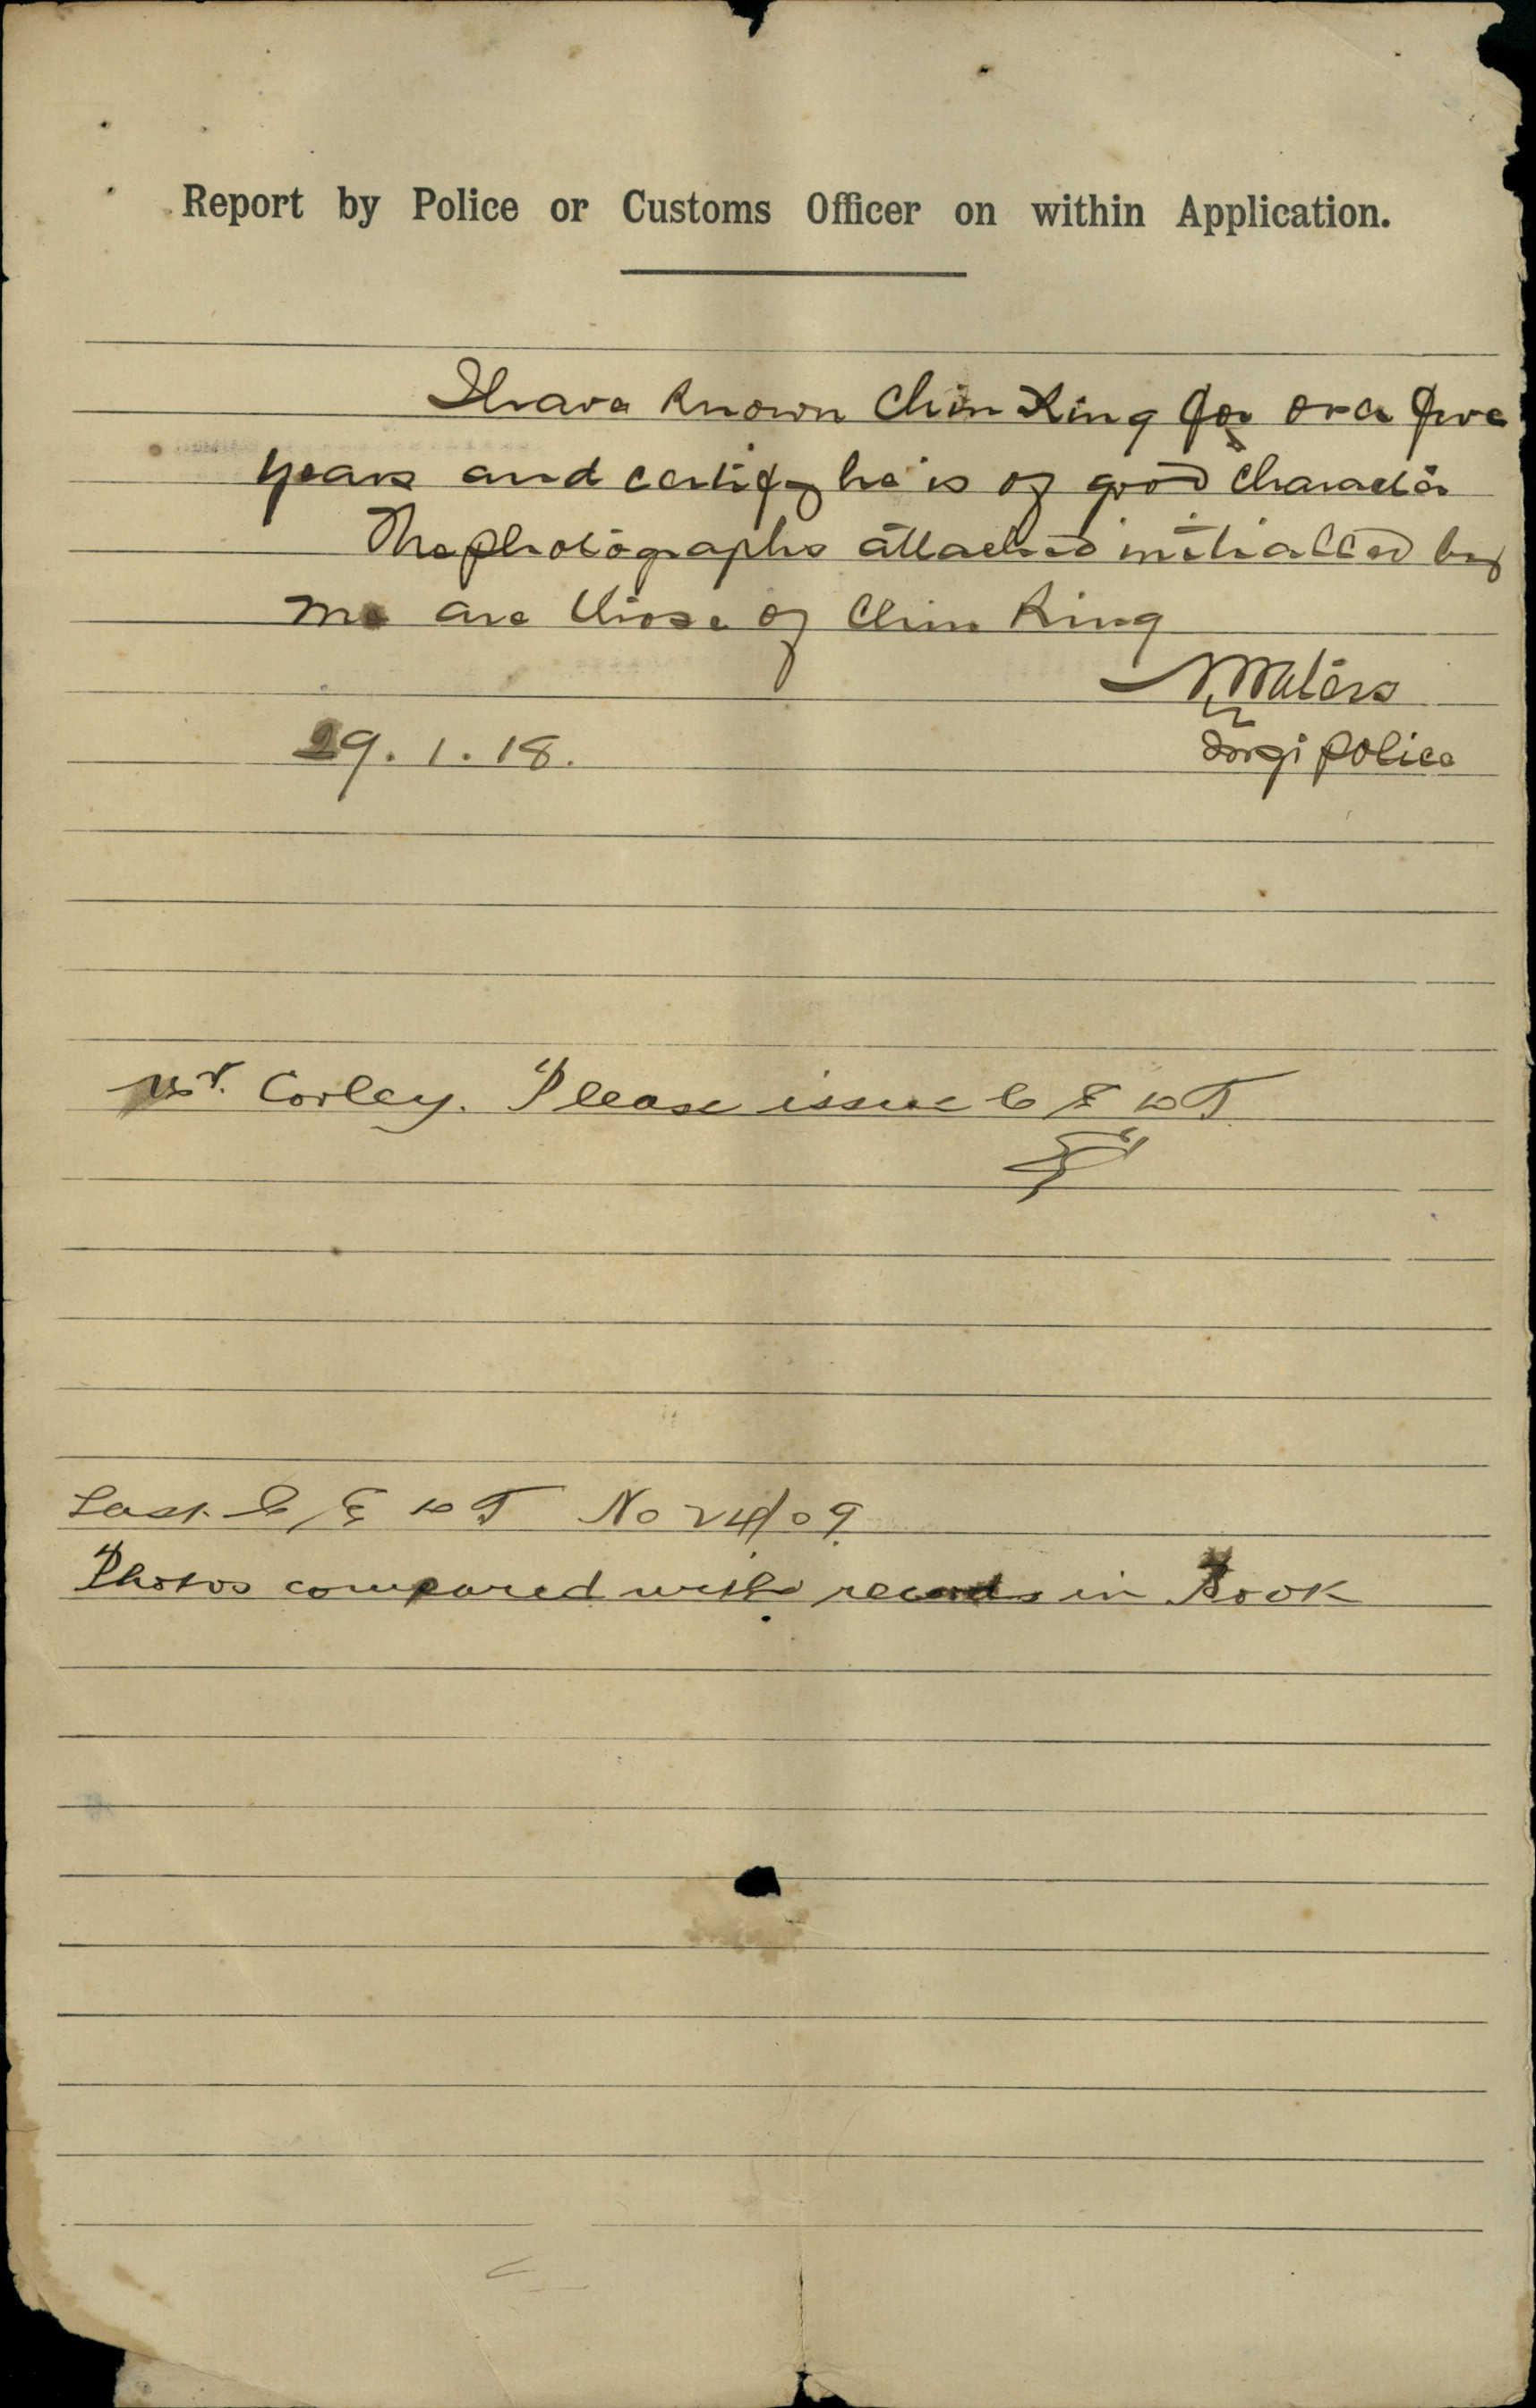 Report by Police or Customs Officer on within Application.
I have known Chin King for over five
years and certify he is of good character
The photographs attached initialled by
me are those of Chin King
Waters
Sergt Police
29.1.18.
Mr. Corley. Please issue C E D T
Last C E D T No 24/09
Photos compared with records in Book